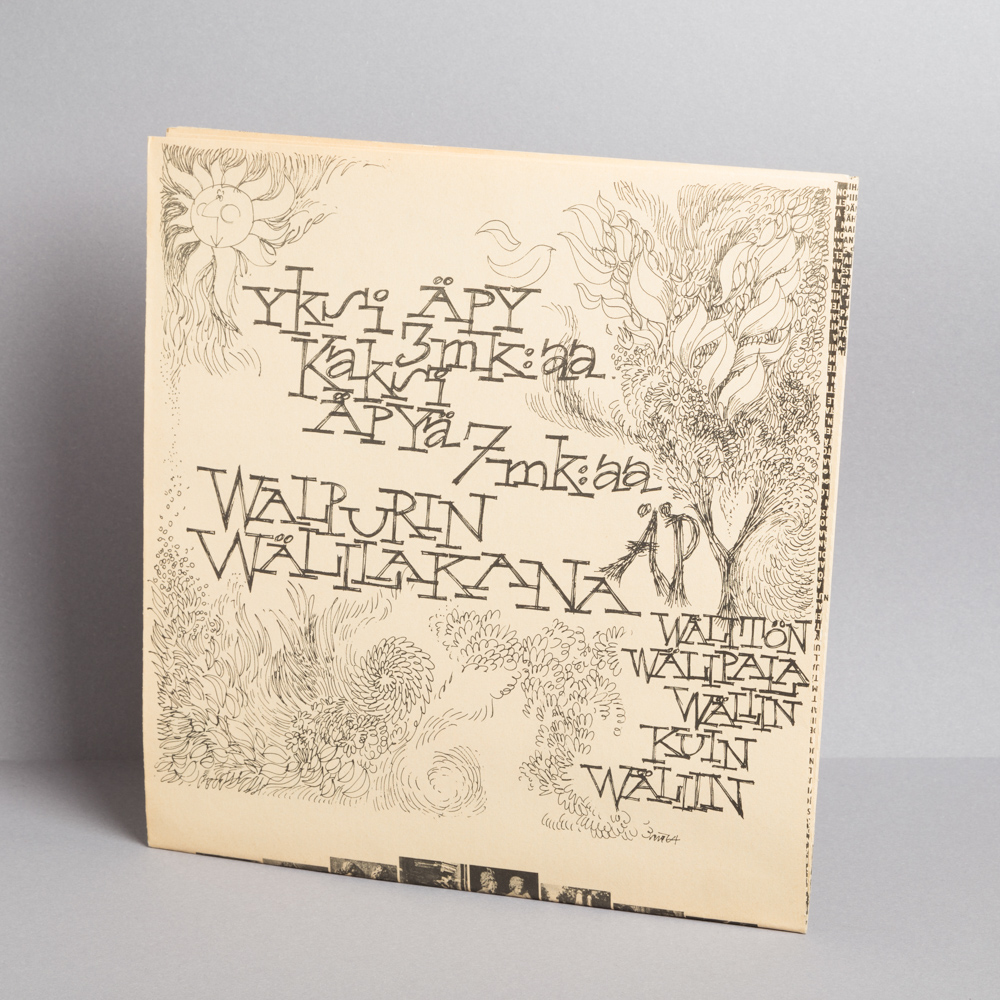 YKSI ÄPY
3mk:aa
KAKSI
ÄPYÄ 7mk:aa
WAIPURIN
WÄLILAKANA ÄP
WÄLITÖN
WÄLIPALA
WÄLIIN
KUIN
WÄLIIN